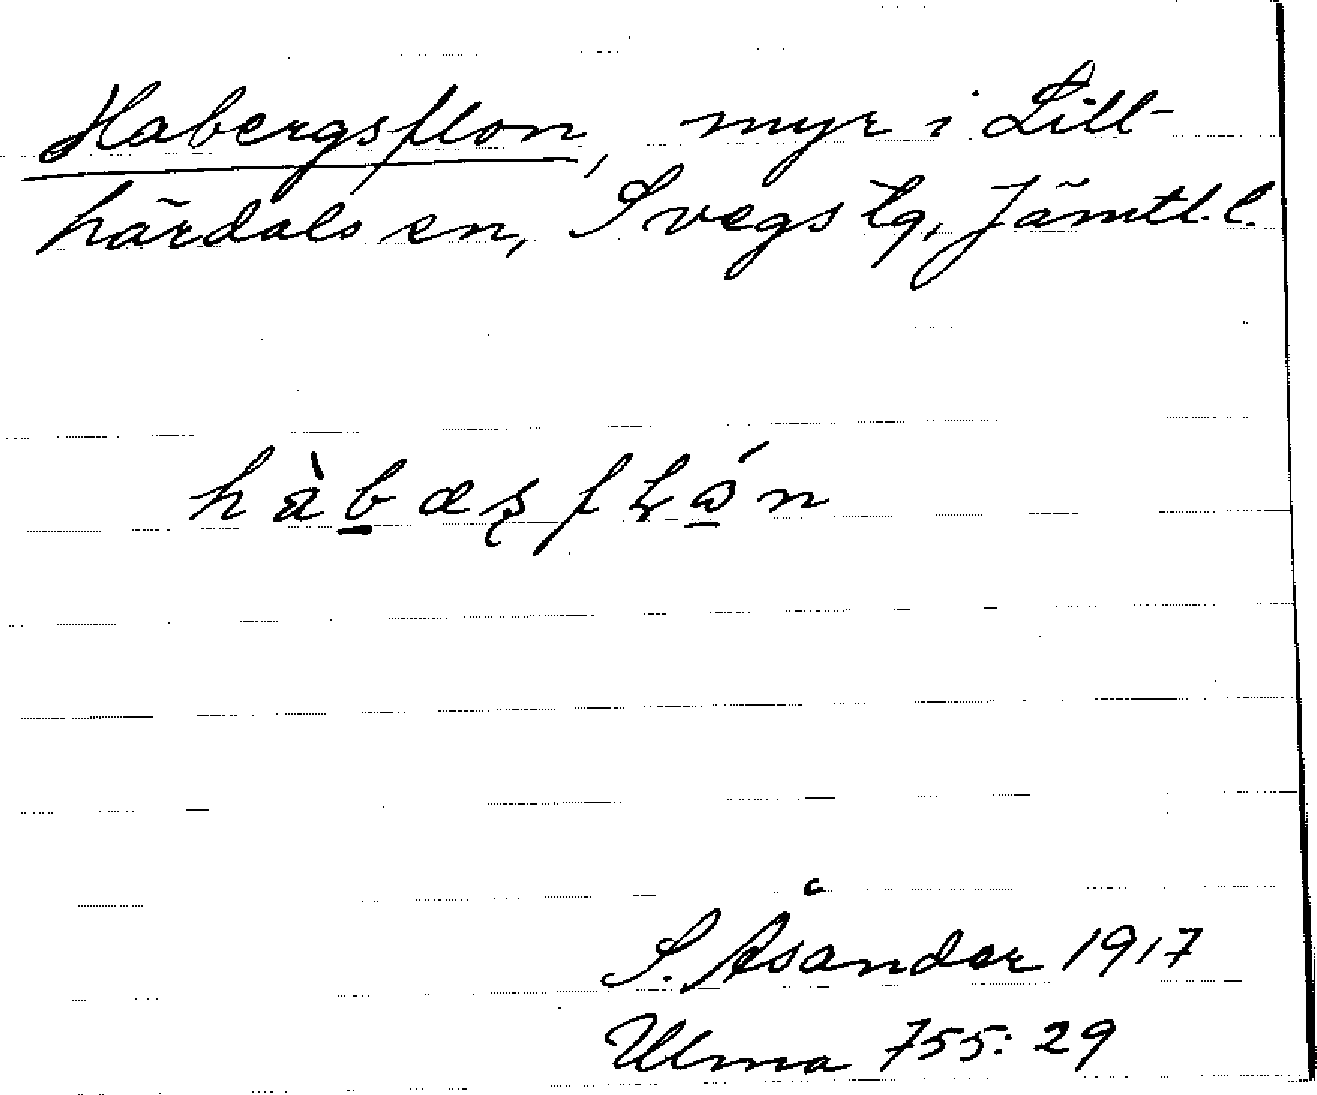 Habergsflon, myr i Lill-
härdals sn, Svegs tg, Jämtl. l.
S. Åsander 1917
Ulma 755:29